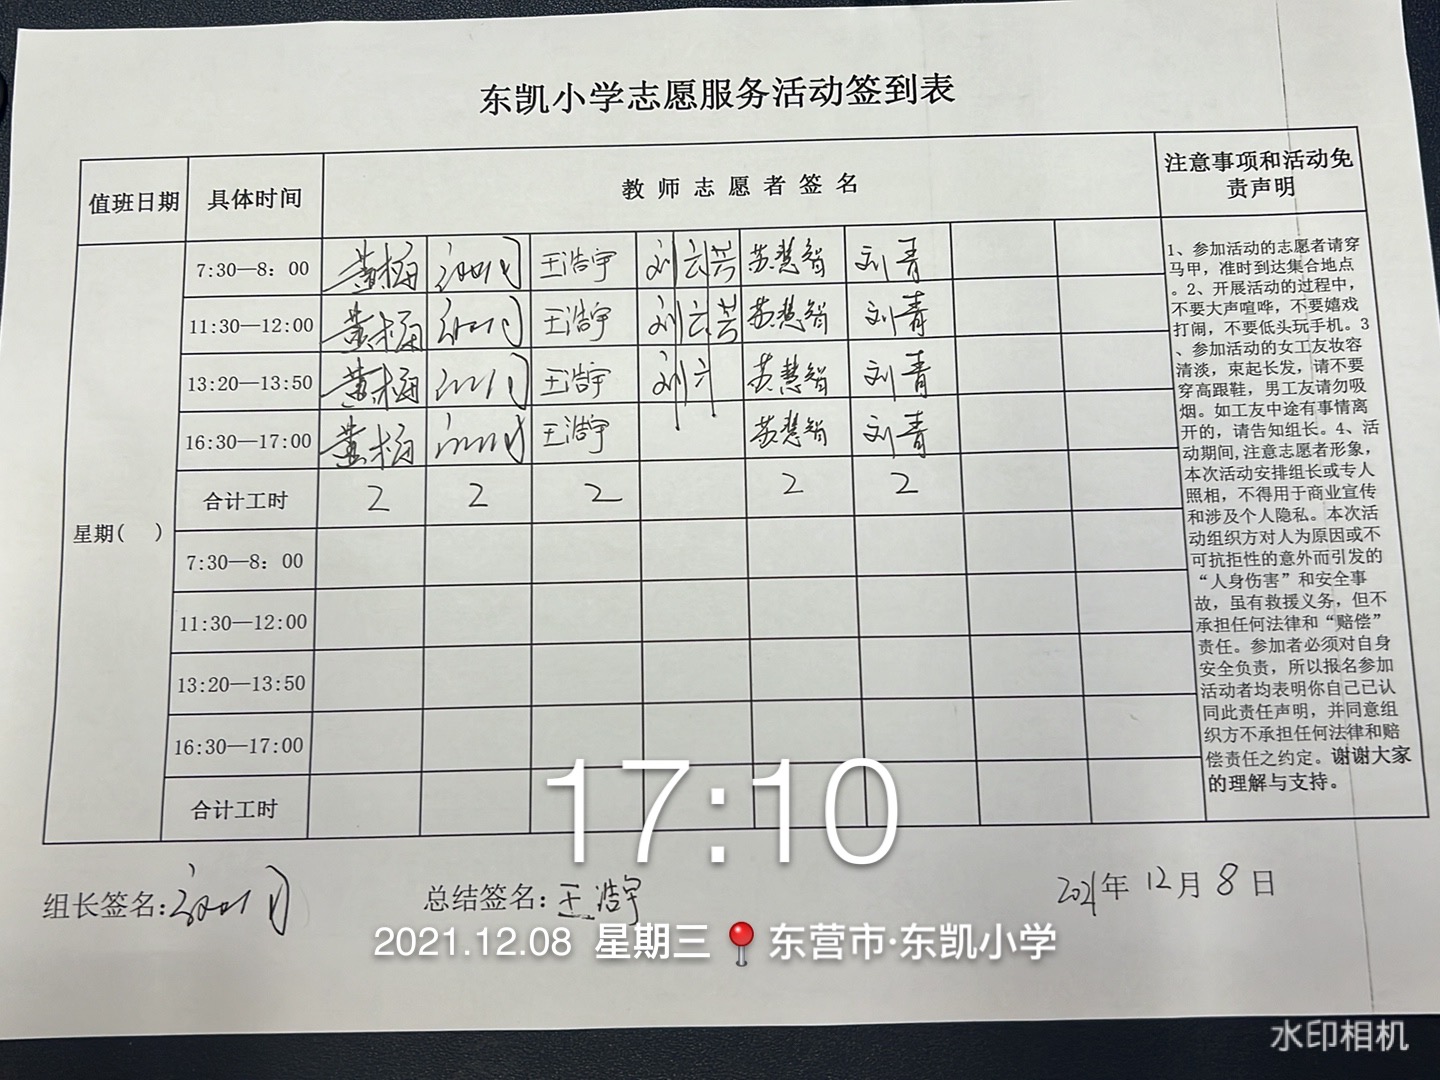 东凯小学志愿服务活动签到表
值班日期 具体时间 教师志愿者签名 注意事项和活动免
责声明
7:30—8：00 黄梅 王浩宇 刘云芸 苏慧智 刘青
11:30—12:00 黄梅 王浩宇 刘云芸 苏慧智 刘青
13:20—13:50 黄梅 王浩宇 刘 苏慧智 刘青
16:30—17:00 黄梅 王浩宇 苏慧智 刘青
合计工时 2 2 2 2 2
星期( )
7:30—8：00
11:30—12:00
13:20—13:50
16:30—17:00
合计工时
1、参加活动的志愿者请穿
马甲，准时到达集合地点
。2、开展活动的过程中，
不要大声喧哗，不要嬉戏
打闹，不要低头玩手机。3
、参加活动的女工友妆容
清淡，束起长发，请不要
穿高跟鞋，男工友请勿吸
烟。如工友中途有事情离
开的，请告知组长。4、活
动期间,注意志愿者形象，
本次活动安排组长或专人
照相，不得用于商业宣传
和涉及个人隐私。本次活
动组织方对人为原因或不
可抗拒性的意外而引发的
“人身伤害”和安全事
故，虽有救援义务，但不
承担任何法律和“赔偿”
责任。参加者必须对自身
安全负责，所以报名参加
活动者均表明你自己已认
同此责任声明，并同意组
织方不承担任何法律和赔
偿责任之约定。谢谢大家
的理解与支持。
17:10
组长签名： 总结签名：王浩宇 2021年12月8日
2021.12.08 星期三 东营市·东凯小学
水印相机